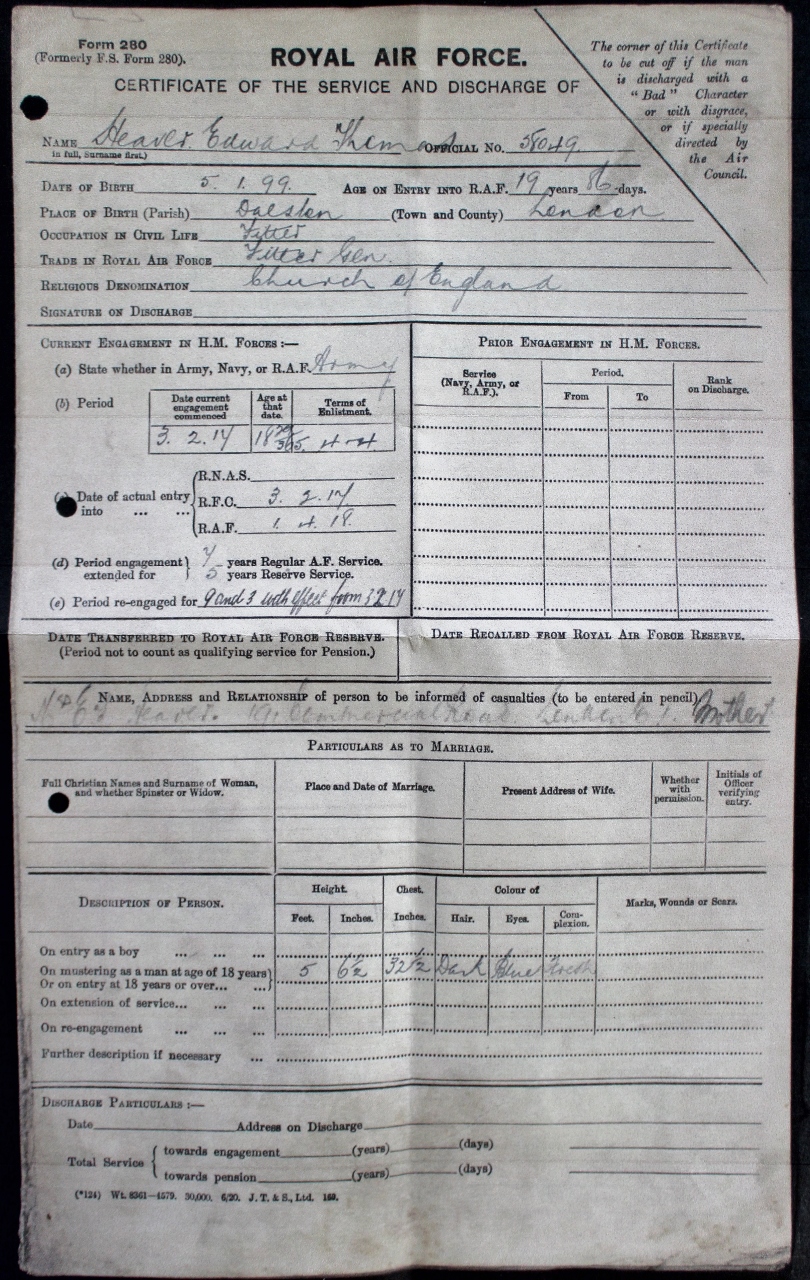 Form 280
(Formerly F.S. Form 280).
ROYAL AIR FORCE.
CERTIFICATE OF THE SERVICE AND DISCHARGE OF
The corner of this Certificate
to be cut off if the man
is discharged with a
"Bad" Character
or with disgrace,
or if specially
directed by
the Air
Council.
NAME Heaver. Edward Thomas OFFICIAL NO. 58049.
in full, Surname first.)
DATE OF BIRTH 5. 1. 99. AGE ON ENTRY INTO R.A.F. 19 years 86 days.
PLACE OF BIRTH (Parish) Dalston (Town and County) London
OCCUPATION IN CIVIL LIFE Fitter
TRADE IN ROYAL AIR FORCE Fitter Gen.
RELIGIOUS DENOMINATION Church of England
SIGNATURE ON DISCHARGE
CURRENT ENGAGEMENT IN H.M. FORCES :—
(a) State whether in Army, Navy, or R.A.F. Army
(b) Period
Date current engagement commenced Age at that date. Terms of Enlistment.
3. 2. 17 18 29/365
Date of actual entry into ... ...
R.N.A.S.
R.F.C. 3. 2. 17
R.A.F. 1. 4. 18.
(d) Period engagement extended for
7 years Regular A.F. Service.
5 years Reserve Service.
(e) Period re-engaged for 9 and 3 with effect from 3 2 17
PRIOR ENGAGEMENT IN H.M. FORCES.
Service (Navy, Army, or R.A.F.). Period. Rank on Discharge.
From To
DATE TRANSFERRED TO ROYAL AIR FORCE RESERVE.
(Period not to count as qualifying service for Pension.)
DATE RECALLED FROM ROYAL AIR FORCE RESERVE.
NAME, ADDRESS AND RELATIONSHIP of person to be informed of casualties (to be entered in pencil)
Heaver. Commercial Road London E.1. Mother
PARTICULARS AS TO MARRIAGE.
Full Christian Names and Surname of Woman, and whether Spinster or Widow.
Place and Date of Marriage.
Present Address of Wife.
Whether with permission.
Initials of Officer verifying entry.
DESCRIPTION OF PERSON.
Height. Chest. Colour of Marks, Wounds or Scars.
Feet. Inches. Inches. Hair. Eyes. Complexion.
On entry as a boy ... ... ...
On mustering as a man at age of 18 years) 5 6½ 32½ Dark Blue Fresh
Or on entry at 18 years or over... ...
On extension of service... ... ...
On re-engagement ... ... ...
Further description if necessary ...
DISCHARGE PARTICULARS :—
Date Address on Discharge
Total Service
towards engagement (years) (days)
towards pension (years) (days)
(*124) Wt. 8361—4579. 30,000. 6/20. J. T. & S., Ltd. 169.